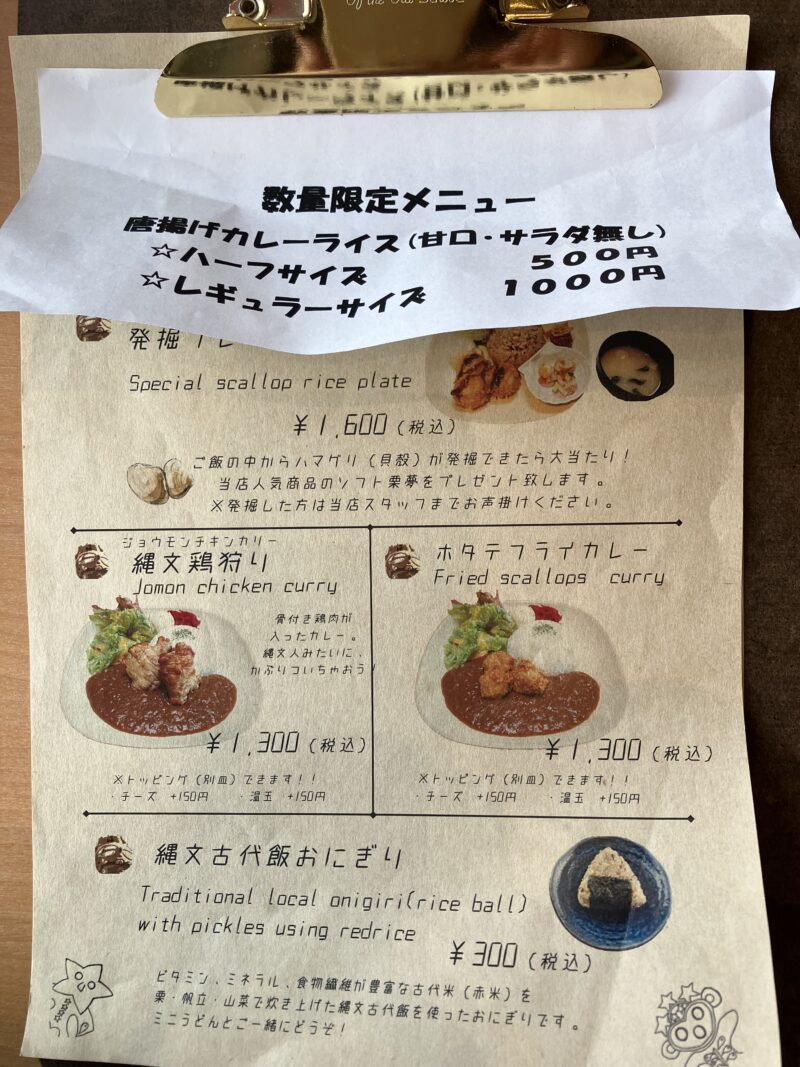 数量限定メニュー
唐揚げカレーライス(甘口・サラダ無し)
☆ハーフサイズ 500円
☆レギュラーサイズ 1000円
発掘プレ
Special scallop rice plate
¥1,600(税込)
ご飯の中からハマグリ(貝殻)が発掘できたら大当たり!
当店人気商品のソフト栗夢をプレゼント致します。
※発掘した方は当店スタッフまでお声掛けください。
ジョウモンチキンカリー
縄文鶏狩り
Jomon chicken curry
骨付き鶏肉が
入ったカレー。
縄文人みたいに、
かぶりついちゃおう!
¥1,300(税込)
※トッピング(別皿)できます!!
・チーズ +150円 ・温玉 +150円
ホタテフライカレー
Fried scallops curry
¥1,300(税込)
※トッピング(別皿)できます!!
・チーズ +150円 ・温玉 +150円
縄文古代飯おにぎり
Traditional local onigiri(rice ball)
with pickles using redrice
¥300(税込)
ビタミン、ミネラル、食物繊維が豊富な古代米(赤米)を
栗・帆立・山菜で炊き上げた縄文古代飯を使ったおにぎりです。
ミニうどんとご一緒にどうぞ!